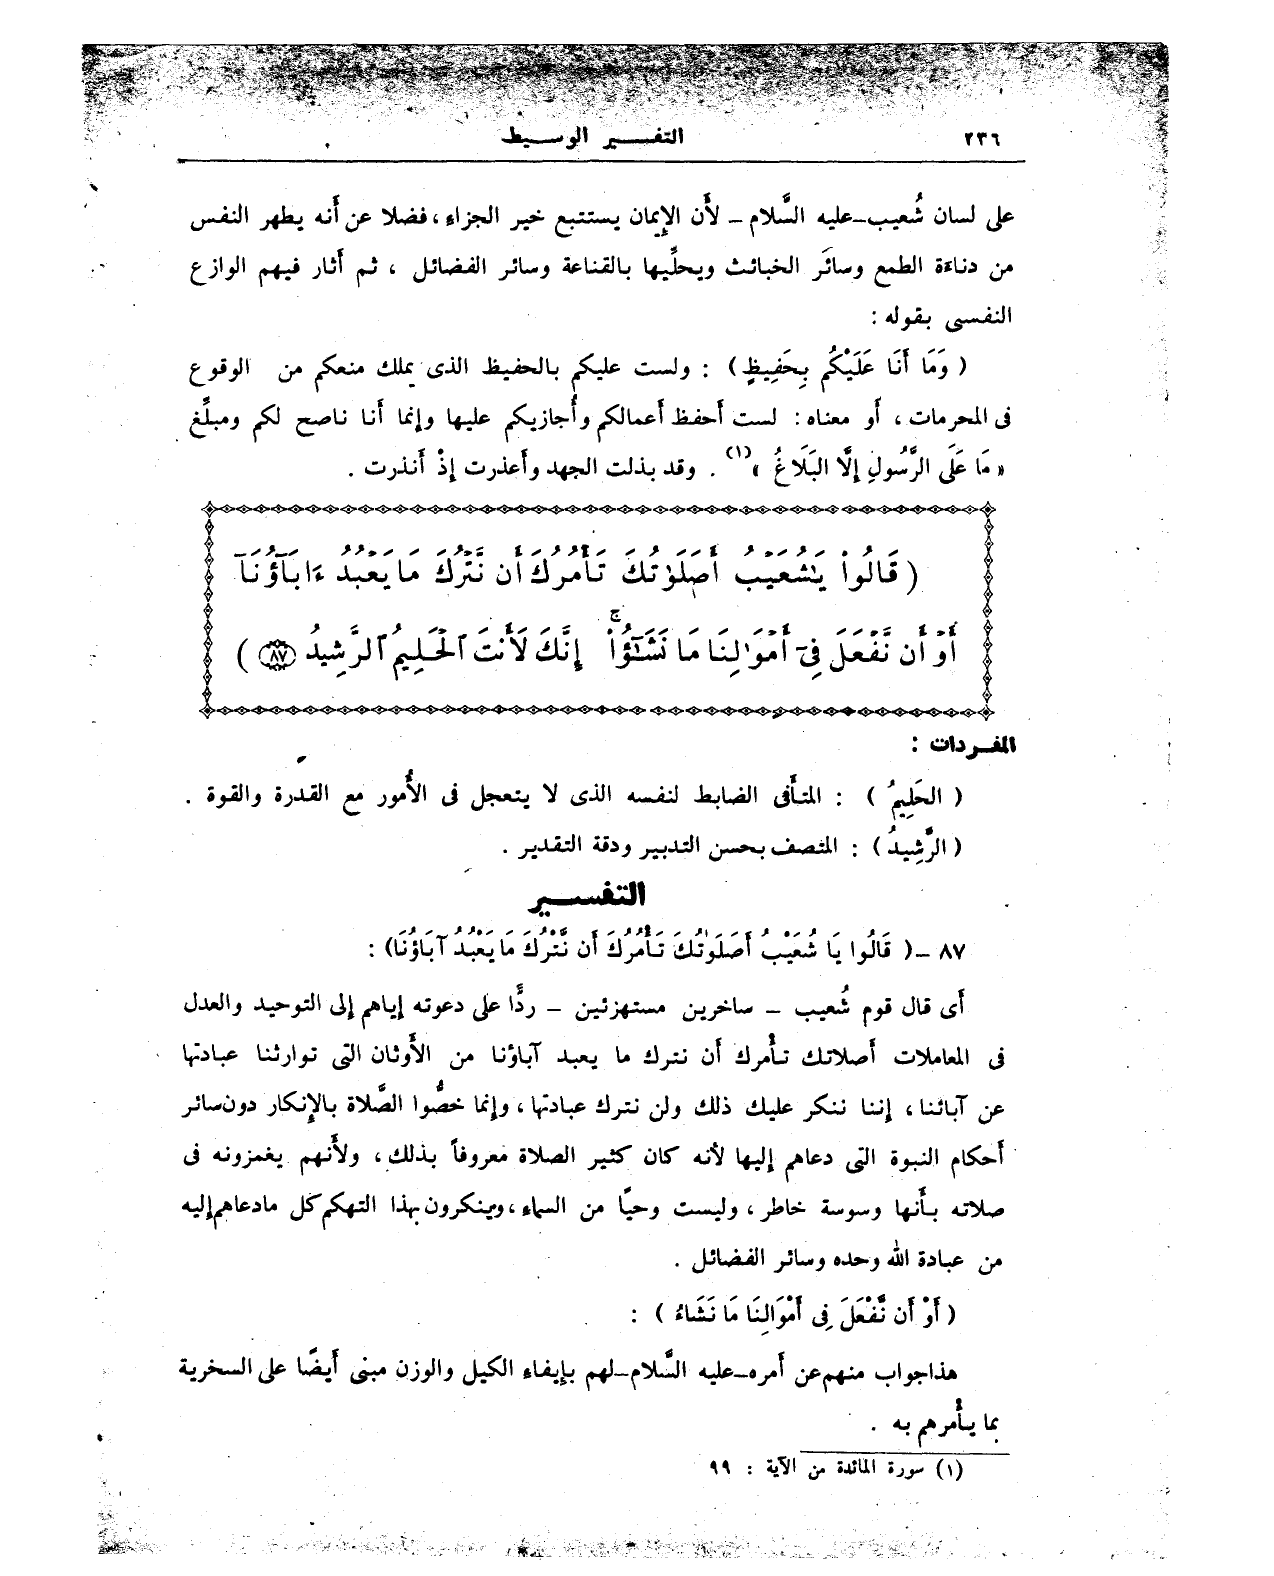 ٢٣٦
التفسير الوسيط
على لسان شُعيب - عليه السَّلام - لأَن الإِيمان يستتبع خير الجزاء ، فضلا عن أَنه يطهر النفس
من دناءة الطمع وسائَر الخبائث ويحلِّيها بالقناعة وسائر الفضائل ، ثم أَثار فيهم الوازع
النفسى بقوله :
( وَمَا أَنَا عَلَيْكُم بِحَفِيظٍ ) : ولست عليكم بالحفيظ الذى يملك منعكم من الوقوع
فى المحرمات ، أَو معناه : لست أَحفظ أَعمالكم وأُجازيكم عليها وإنما أَنا ناصح لكم ومبلَّغ
« مَا عَلَى الرَّسُولِ إِلَّا البَلَاغُ »(١) . وقد بذلت الجهد وأَعذرت إِذْ أَنذرت .
( قَالُوا۟ يَـٰشُعَيْبُ أَصَلَوٰتُكَ تَأْمُرُكَ أَن نَّتْرُكَ مَا يَعْبُدُ ءَابَآؤُنَآ
أَوْ أَن نَّفْعَلَ فِىٓ أَمْوَٰلِنَا مَا نَشَـٰٓؤُا۟ ۖ إِنَّكَ لَأَنتَ ٱلْحَلِيمُ ٱلرَّشِيدُ ٨٧ )
المفردات :
( الحَلِيمُ ) : المتأَنى الضابط لنفسه الذى لا يتعجل فى الأُمور مع القدرة والقوة .
( الرَّشِيدُ ) : المتصف بحسن التدبير ودقة التقدير .
التفسير
٨٧ - ( قَالُوا يَا شُعَيْبُ أَصَلَوٰتُكَ تَأْمُرُكَ أَن نَّتْرُكَ مَا يَعْبُدُ آبَاؤُنَا ) :
أَى قال قوم شُعيب - ساخرين مستهزئين - ردًّا على دعوته إِياهم إِلى التوحيد والعدل
فى المعاملات أَصلاتك تأْمرك أَن نترك ما يعبد آباؤنا من الأَوثان التى توارثنا عبادتها
عن آبائنا ، إِننا ننكر عليك ذلك ولن نترك عبادتها ، وإنما خصُّوا الصَّلاة بالإِنكار دون سائر
أَحكام النبوة التى دعاهم إِليها لأَنه كان كثير الصلاة معروفاً بذلك ، ولأَنهم يغمزونه فى
صلاته بأَنها وسوسة خاطر ، وليست وحيًا من السماء ، وينكرون بهذا التهكم كل مادعاهم إليه
من عبادة الله وحده وسائر الفضائل .
( أَوْ أَن نَّفْعَلَ فِى أَمْوَالِنَا مَا نَشَاءُ ) :
هذا جواب منهم عن أَمره - عليه السَّلام - لهم بإِيفاء الكيل والوزن مبنى أَيضًا على السخرية
بما يأْمرهم به .
(١) سورة المائدة من الآية : ٩٩